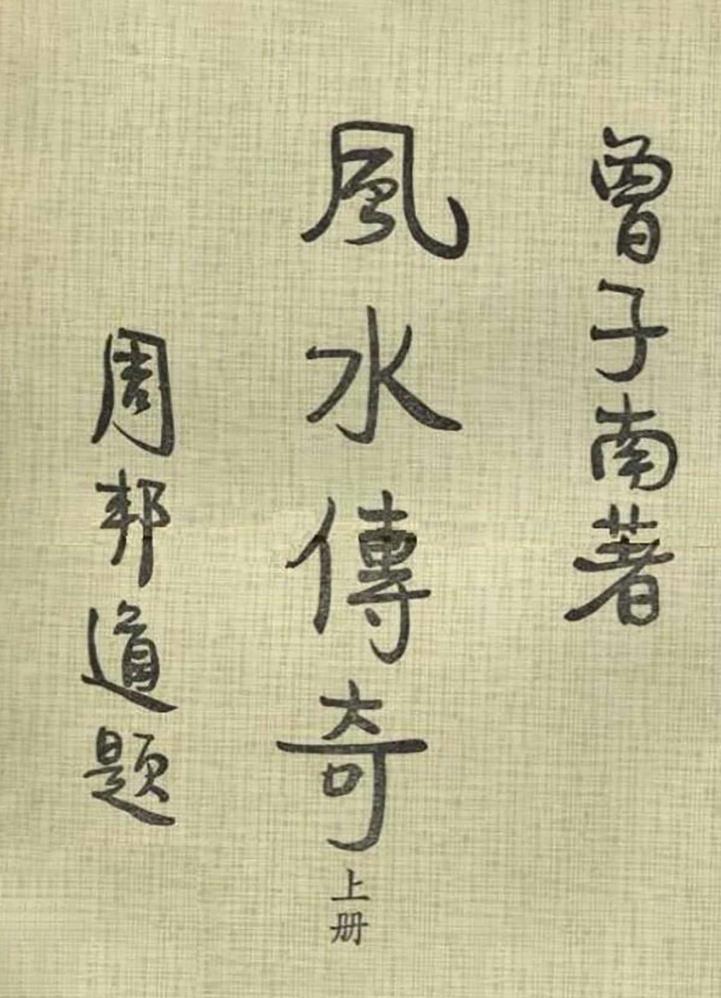 曾子南著
風水傳奇
上册
周邦道題